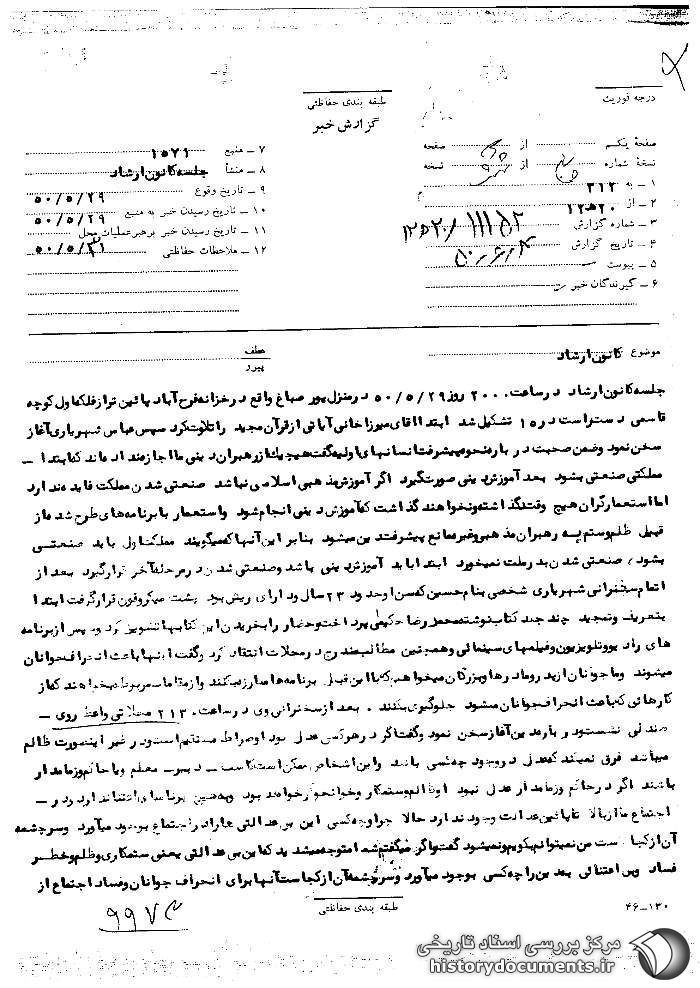 درجه فوریت
طبقه بندی حفاظتی
گزارش خبر
صفحهٔ یکم از صفحه
نسخهٔ شماره از نسخه
۱ – به ۳۱۲
۲ – از ۲۰ هـ ۱۲
۳ – شماره گزارش ۱۱۱۵۲/ ۲۰ هـ ۱۲
۴ – تاریخ گزارش
۵ – پیوست
۶ – گیرندگان خبر
۷ – منبع ۱۵۷۱
۸ – منشأ جلسه کانون ارشاد
۹ – تاریخ وقوع ۵۰/۵/۲۹
۱۰ – تاریخ رسیدن خبر به منبع ۵۰/۵/۲۹
۱۱ – تاریخ رسیدن خبر برهبر عملیات محل ۵۰/۵/۳۱
۱۲ – ملاحظات حفاظتی
موضوع کانون ارشاد
عطف
پیرو
جلسه کانون ارشاد در ساعت ۲۰۰۰ روز ۵۰/۵/۲۹ در منزل پور صباغ واقع در خزانه فرح آباد پائین تر از فلکه اول کوچه
قاسمی دست راست در ۱۵ تشکیل شد ابتدا آقای میرزاخانی آیاتی از قرآن مجید را تلاوت کرد سپس عباس شهریاری آغاز
سخن نمود وضمن صحبت در باره نحوه پیشرفت انسانهای اولیه گفت هیچیک از رهبران دینی ما اجازه نداده اند که ابتدا –
مملکتی صنعتی بشود بعد آموزش دینی صورت گیرد اگر آموزش مذهبی اسلامی نباشد صنعتی شدن مملکت فایده ندارد
اما استعمارگران هیچ وقت نگذاشته ونخواهند گذاشت که آموزش دینی انجام شود واستعمار با برنامه های طرح شده از
قبیل ظلم وستم به رهبران مذهبی وغیره مانع پیشرفت دین میشود بنا بر این آنها که میگویند مملکت اول باید صنعتی
بشود، صنعتی شدن بدرد ملت نمیخورد ابتدا باید آموزش دینی باشد وصنعتی شدن در مرحله آخر قرار گیرد بعد از
اتمام سخنرانی شهریاری شخصی بنام حسین که سن او حدود ۲۳ سال ودارای ریش بود پشت میکروفون قرار گرفت ابتدا
بتعریف وتمجید چند جلد کتاب نوشته محمد رضا حکیمی پرداخت وحضار را بخریدن این کتابها تشویق کرد وسپس از برنامه
های رادیو وتلویزیون وفیلمهای سینمائی وهمچنین مطالب مندرج در مجلات انتقاد کرد وگفت اینها باعث انحراف جوانان
میشوند وما جوانان از پدر ومادرها وبزرگان میخواهیم که با این قبیل برنامه ها مبارزه کنند واز مقامات مربوطه میخواهند که از
کارهائی که باعث انحراف جوانان میشود جلوگیری بکنند . بعد از سخنرانی وی در ساعت ۲۱۳۰ محلاتی واعظ روی –
صندلی نشست ودر باره دین آغاز سخن نمود وگفت اگر در هر کسی عدل بود او صراط مستقیم است ودر غیر اینصورت ظالم
میباشد فرق نمیکند که عدل در وجود چه کسی باشد واین اشخاص ممکن است کاسب – دبیر – معلم ویا حاکم وزمامدار
باشند اگر در حاکم وزمامدار عدل نبود او ظالم وستمکار وخوانخوار خواهد بود وبه همین برنامه ای اعتنا ندارد ودر –
اجتماع ما از بالا تا پائین عدالت وجود ندارد حالا چرا وچه کسی این بی عدالتی ها را در اجتماع بوجود میآورد وسرچشمه
آن از کجا است من نمیتوانم بگویم ونمیشود گفت واگر میگفتم شما متوجه میشدید که این بی عدالتی یعنی ستمکاری وظلم وخطر
فساد وبی اعتنائی بدین را چه کسی بوجود میآورد وسرچشمه آن از کجاست آنها برای انحراف جوانان وفساد اجتماع از
طبقه بندی حفاظتی
۴۶–۱۳۰
مرکز بررسی اسناد تاریخی
historydocuments.ir